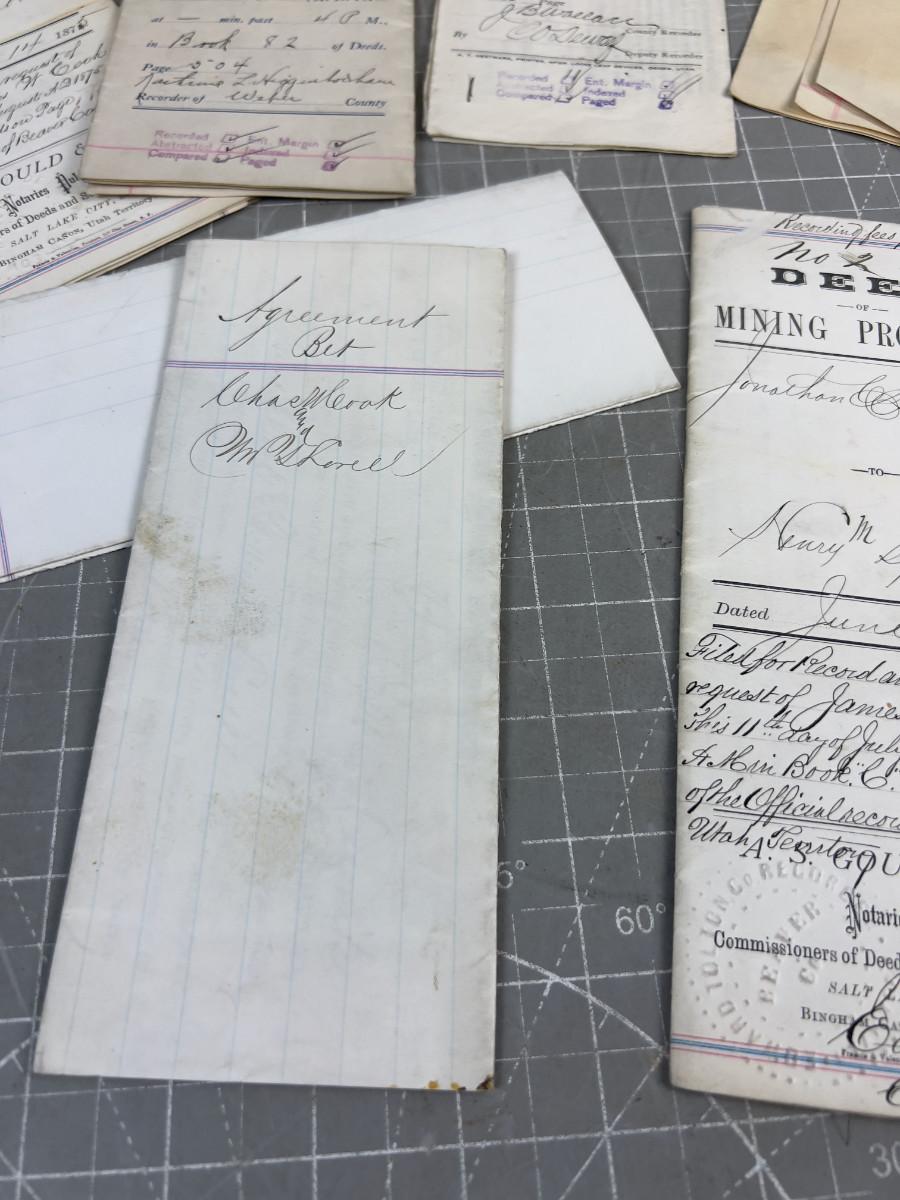 14 1875
request of
W Cook
August A.D 1875
of Beaver Co
OULD &
Notaries Pub
rs of Deeds and
SALT LAKE CITY,
BINGHAM CAÑON, Utah Territory
at — min. past 4 P M.,
in Book 82 of Deeds.
Page 504
Recorder of Weber County
Recorded Ent. Margin
Abstracted Indexed
Compared Paged
By County Recorder
Deputy Recorder
Recorded Ent. Margin
Abstracted Indexed
Compared Paged
Agreement
Bet
Chas W Cook
and
Wm Y Lovell
Recording fees
No 2
DEE
—OF—
MINING PRO
Jonathan
—TO—
Henry M
Dated June
Filed for Record
request of James
this 11th day of July
Book "C"
of the Official recor
Utah Territory
A. S. GOU
Notari
Commissioners of Deed
SALT
BINGHAM CA
RECOR
BEAVER
CO
60°
30